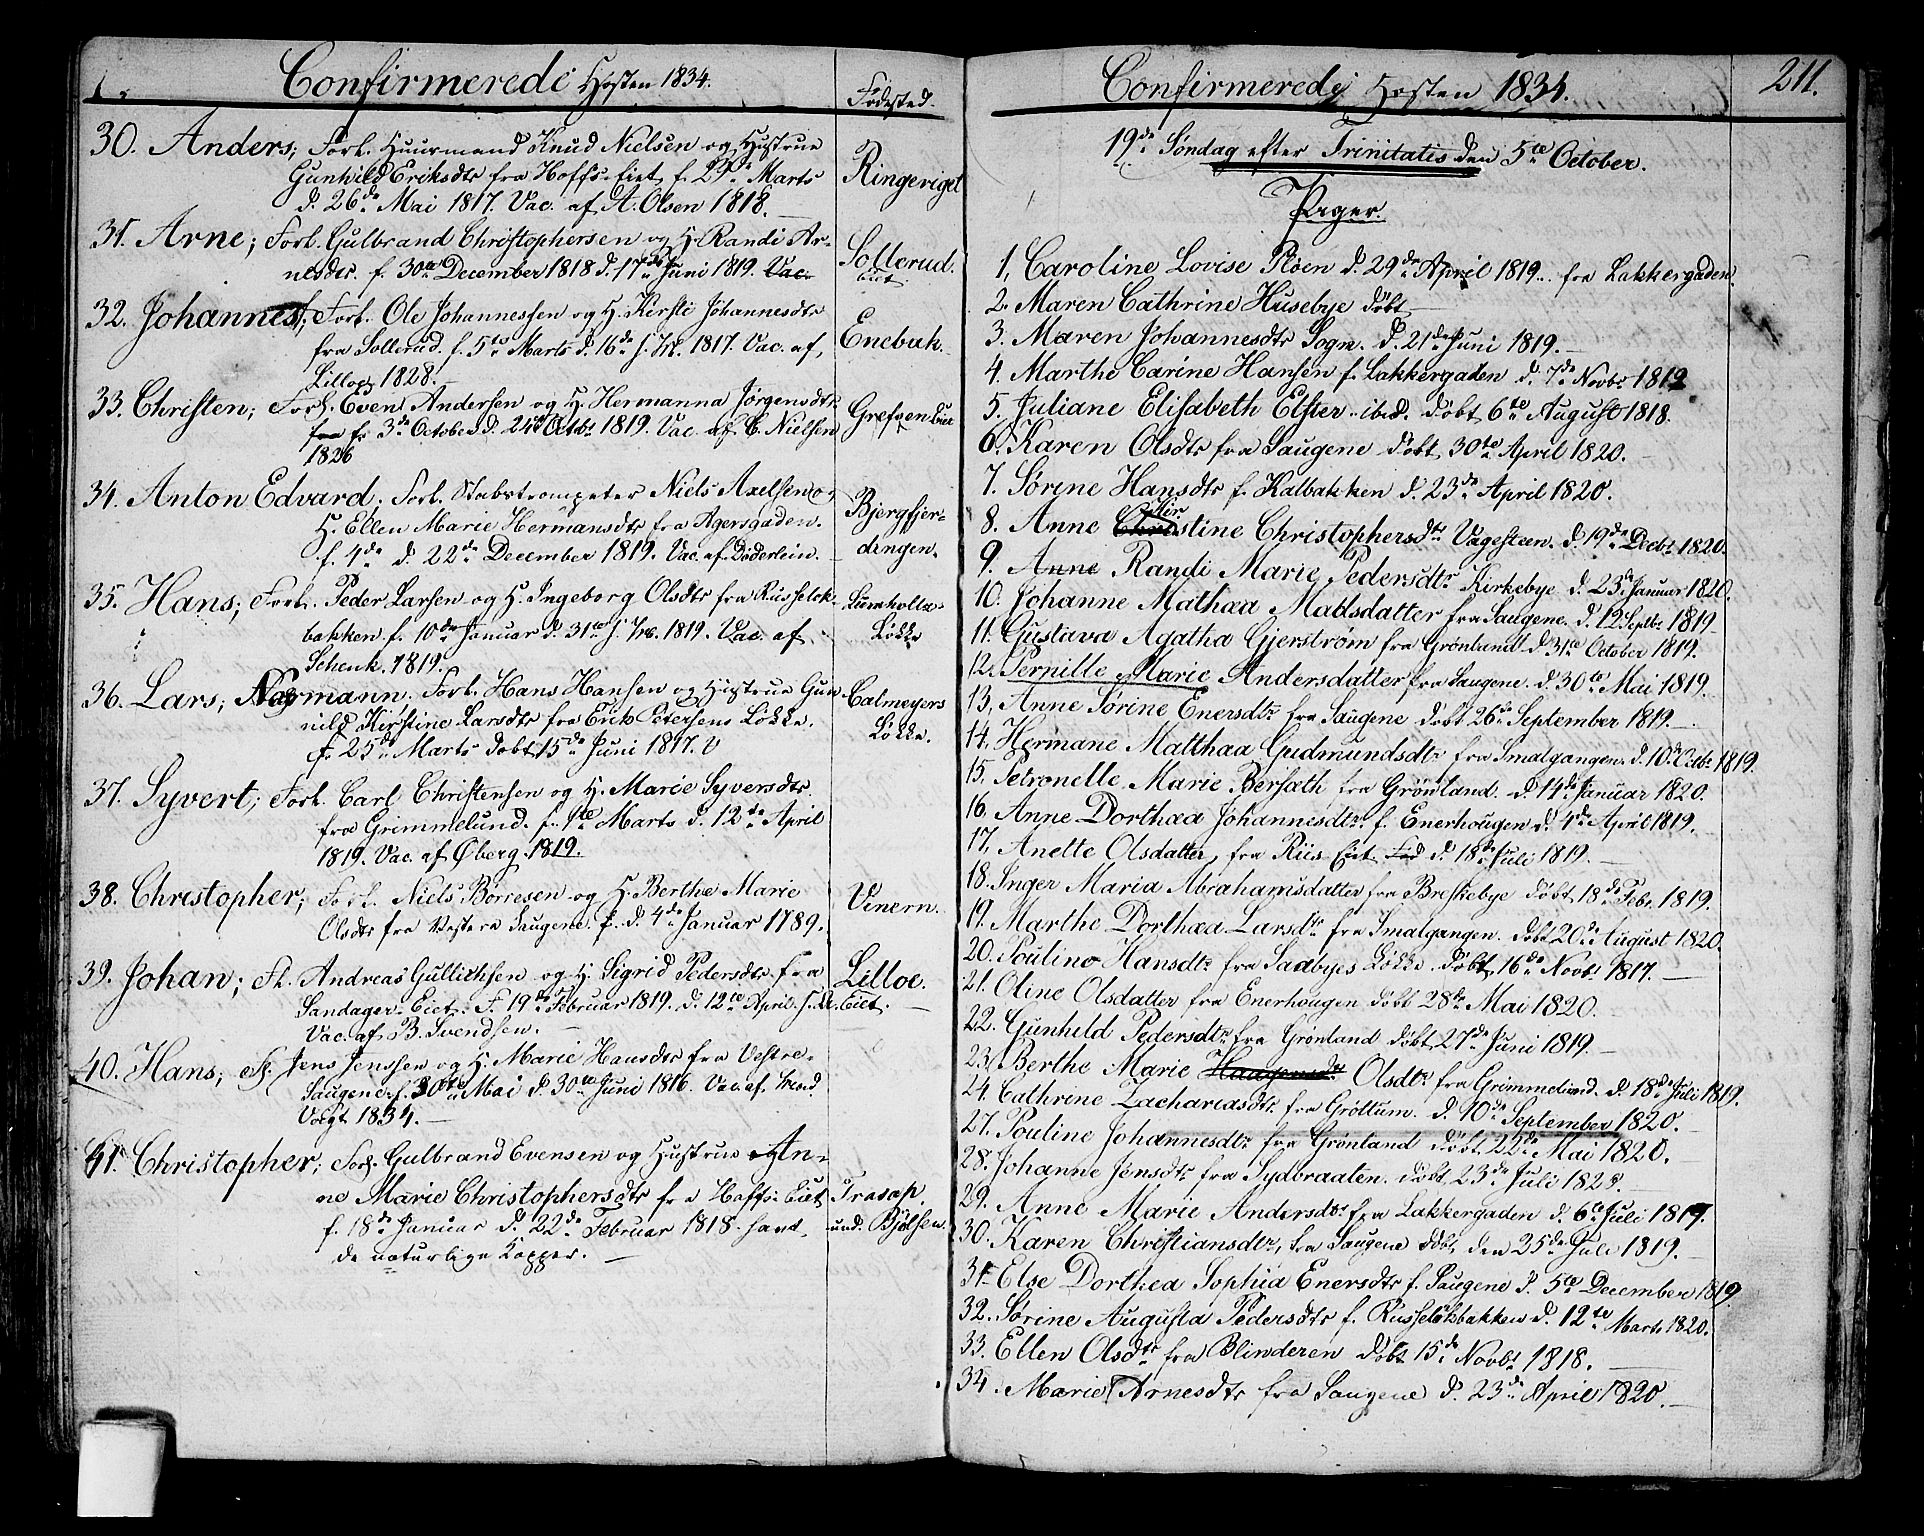 Confirmerede Høsten 1834.
Fødested.
30. Anders; Forl. Huusmand Knud Nielsen og Hustrue
Gunhild Eriksdtr fra Hoffs-Eiet f. 29de Marts
d. 26de Mai 1817. Vac. af A. Olsen 1818.
Ringeriget
31. Arne; Forl. Gulbrand Christophersen og H. Randi Ar-
nesdtr. f. 30te December 1818 d. 17de Juni 1819. Vac.
Sollerud.
Eiet.
32. Johannes; Forl. Ole Johannessen og H. Kirsti Johannesdtr
fra Sollerud. f. 5te Marts d. 16de s. M. 1817. Vac. af
Lilloe 1828.
Enebak.
33. Christen; Forl. Even Andersen og H. Hermanna Jørgensdtr
fra fr 3de October d. 24de Octbr 1819. Vac. af C. Nielsen
1826
Grefsen Eiet
34. Anton Edvard; Forl. Stabstrompeter Niels Axelsen o-
H. Ellen Marie Hermansdtr fra Agersgaden.
f. 4de d. 22de December 1819. Vac. af Döderlein.
Bjergfjer-
dingen.
35. Hans; Forl. Peder Larsen og H. Ingeborg Olsdtr fra Russeløk-
bakken f. 10de Januar d. 31te s. M. 1819. Vac. af
Schenk. 1819.
Løkke
36. Lars; Normann. Forl. Hans Hansen og Hustrue Gun-
nild Kirstine Larsdtr fra Erik Petersens Løkke.
f. 25de Marts døbt 15de Juni 1817. V
Calmeyers
Løkke.
37. Syvert; Forl. Carl Christensen og H. Marie Syversdtr.
fra Grimmelund. f. 1te Marts d. 12te April
1819. Vac. af Øberg. 1819.
38. Christopher; Forl. Niels Børresen og H. Berthe Marie
Olsdtr fra Vestere Saugene. f. d. 4de Januar 1789.
Vinern.
39. Johan; Fl. Andreas Gullichsen og H. Sigrid Pedersdtr. fra
Sandager-Eiet. f. 19de Februar 1819. d. 12te April. s. A.
Vac. af B. Svendsen.
Lilloe.
Eiet.
40. Hans; Fl. Jens Jensen og H. Marie Hansdtr fra Vestre-
Saugene. f. 30te Mai d. 30te Juni 1816. Vac. af
Vogt 1834.
41. Christopher; Forl. Gulbrand Evensen og Hustrue An-
ne Marie Christophersdtr fra Hoffs-Eiet
f. 18de Januar d. 22de Februar 1818. havt
de naturlige Kopper.
Traaep.
und. Bjølsen.
Confirmerede Høsten 1834.
211.
19de Søndag efter Trinitatis den 5te October.
Piger.
1, Caroline Lovise Pløen d. 29de April 1819. fra Lakkergaden.
2. Maren Cathrine Husebye døbt
3. Maren Johannesdtr Sogn. d. 21de Juni 1819.
4. Marthe Carine Hansen f. Lakkergaden d. 7de Novbr 1819
5. Juliane Elisabeth Elster. ibid. døbt 6te August 1818.
6. Karen Olsdtr fra Saugene døbt 30te April 1820.
7. Sørine Hansdtr f. Kalbakken d. 23de April 1820.
8. Anne Christine Christophersdtr Vagesteen. d. 19de Decbr 1820.
9. Anne Randi Marie Pedersdtr Kirkebye d. 23de Januar 1820.
10. Johanne Mathæa Madsdatter fra Saugene. d. 12 Septbr 1819
11. Gustava Agatha Gjerstrøm fra Grønland d. 31te October 1819.
12. Pernille Marie Andersdatter fra Saugene. d. 30te Mai 1819.
13, Anne Sørine Enersdtr fra Saugene døbt 26de September 1819.
14. Hermane Matthæa Gudmundsdtr fra Smalgangen. d. 10de Octbr 1819.
15. Petronelle Marie Bersath fra Grønland. d. 14de Januar 1820.
16. Anne Dorthæa Johannesdtr. f. Enerhougen d. 4de April 1819.
17, Anette Olsdatter, fra Riis Eiet. Fød d. 18de Juli 1819.
18. Inger Maria Abrahamsdatter fra Breskebye døbt 18de Febr. 1819.
19. Marthe Dorthæa Larsdtr fra Smalgangen. døbt 20de August 1820.
20. Pouline Hansdtr fra Saabyes Løkke. døbt 16de Novbr 1817.
21. Oline Olsdatter fra Enerhougen døbt 28de Mai 1820.
22. Gunhild Pedersdtr fra Grønland døbt 27de Juni 1819.
23. Berthe Marie Haagensdtr Olsdtr fra Grimmelund. d. 18de Juli 1819.
24. Cathrine Zachariasdtr. fra Grøttum. d. 10de September 1820.
27. Pouline Johannesdtr fra Grønland døbt 22de Mai 1820.
28. Johanne Jensdtr fra Sydbraaten. døbt 23de Juli 1820.
29. Anne Marie Andersdtr fra Lakkergaden d. 6te Juli 1819.
30. Karen Christiansdtr, fra Saugene døbt den 25de Juli 1819.
31. Else Dorthea Sophia Enersdtr f. Saugene d. 5te December 1819.
32. Sørine Augusta Pedersdtr f. Russeløkbakken d. 12te Marts 1820.
33. Ellen Olsdtr fra Blinderen døbt 15de Novbr 1818.
34. Marie Arnesdtr fra Saugene d. 23de April 1820.